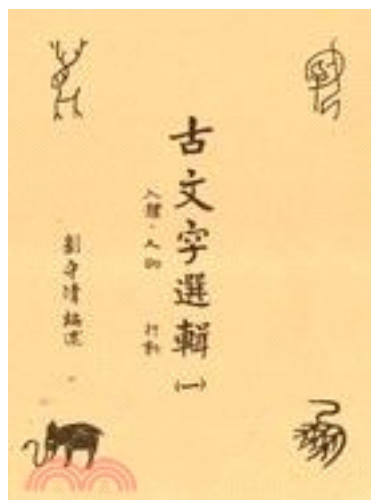 古文字選輯(一)
人體．人倫 行動
劉守清編選